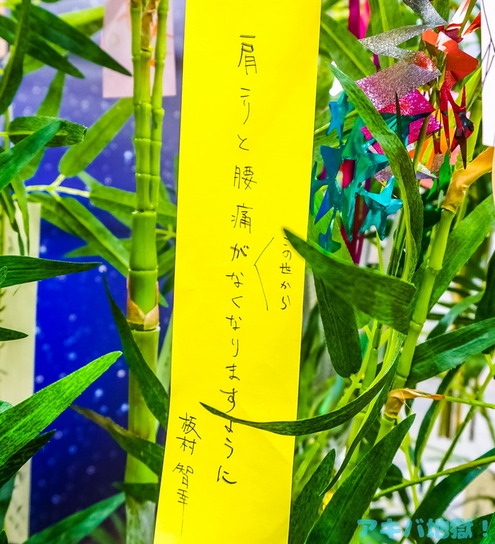 肩こりと腰痛がなくなりますように
この世から
板村 智幸
アキバ地獄！